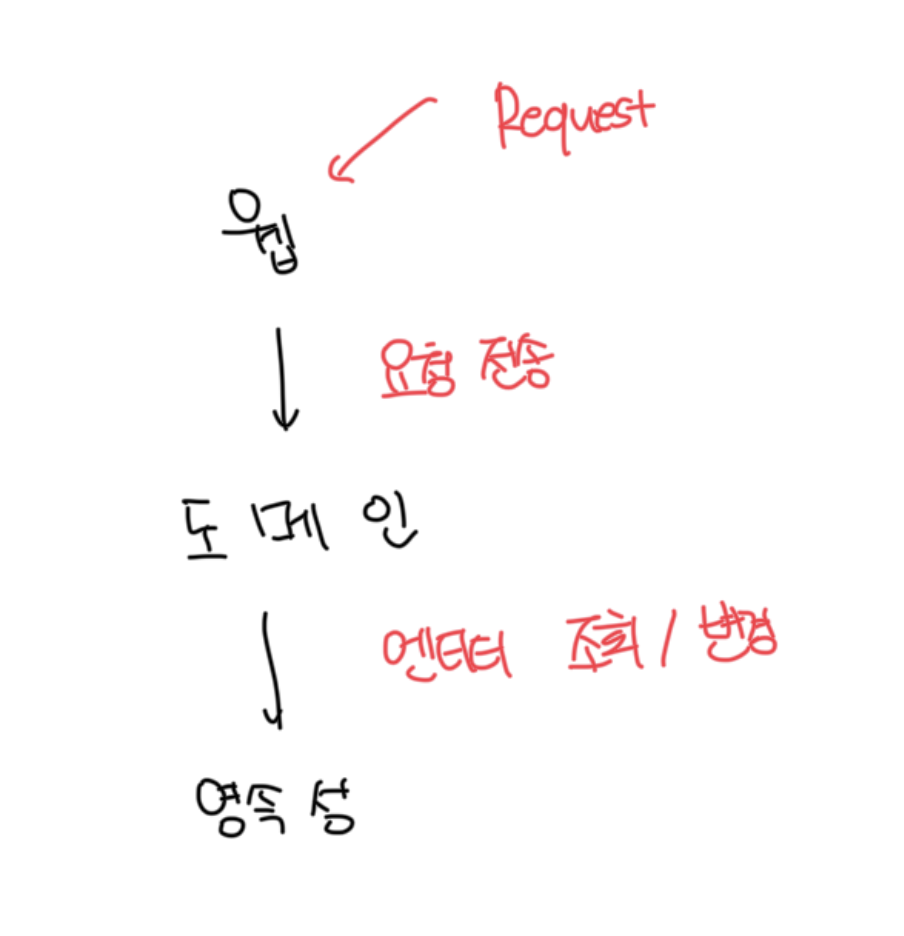 Request
웹
요청 전송
도메인
엔티티 조회 / 변경
영속성